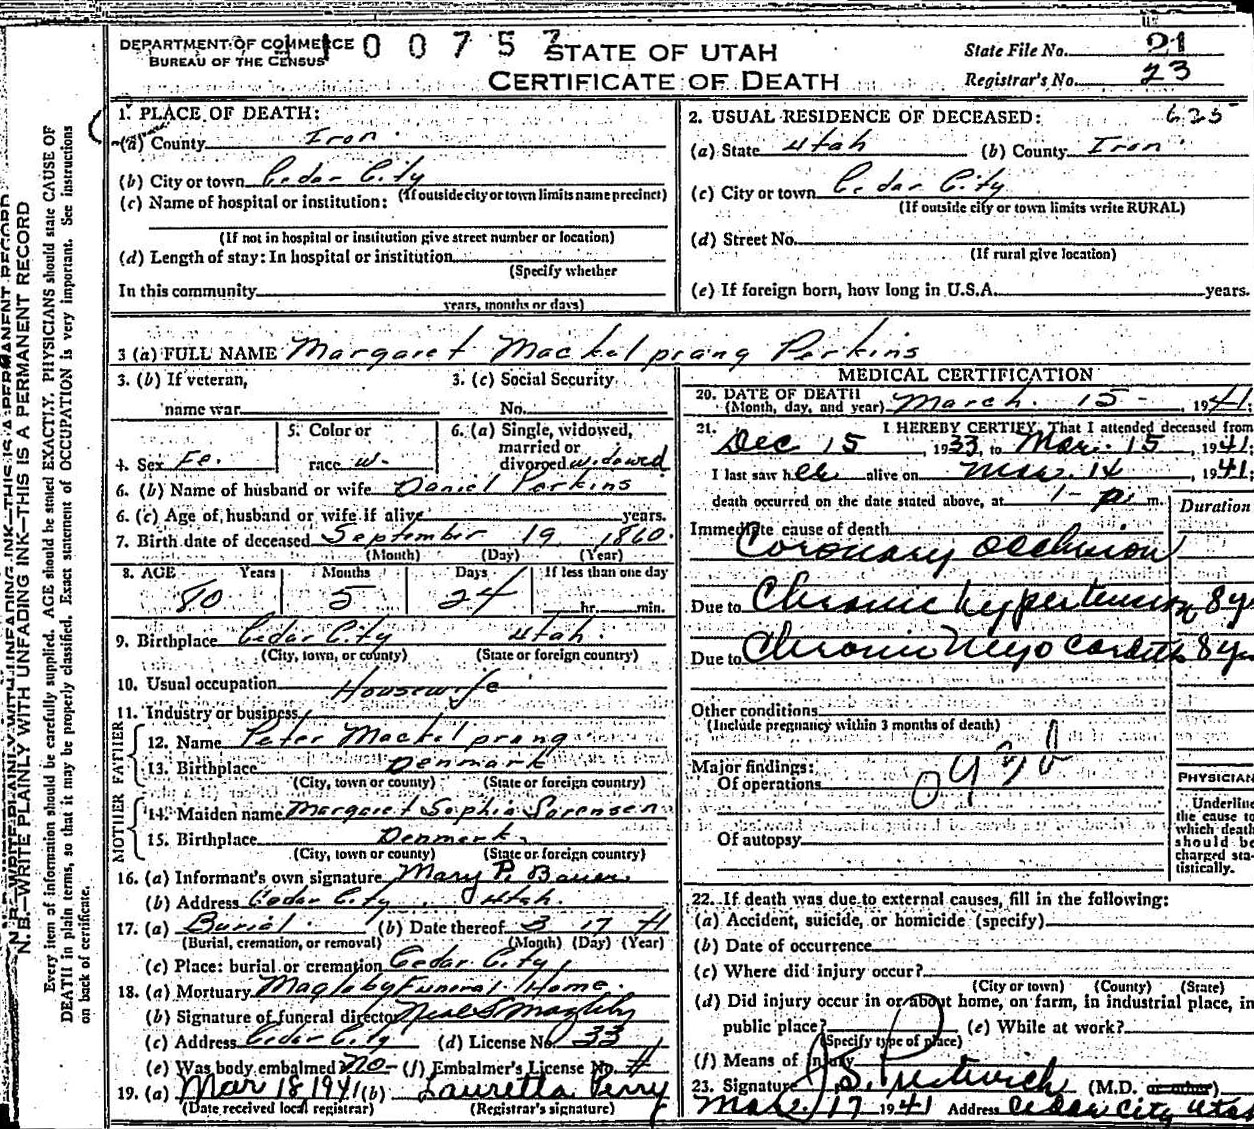 DEPARTMENT OF COMMERCE
BUREAU OF THE CENSUS
4100757
STATE OF UTAH
CERTIFICATE OF DEATH
State File No. 21
Registrar's No. 23
1. PLACE OF DEATH:
(a) County Iron
(b) City or town Cedar City
(If outside city or town limits name precinct)
(c) Name of hospital or institution:
(If not in hospital or institution give street number or location)
(d) Length of stay: In hospital or institution
(Specify whether
In this community
years, months or days)
2. USUAL RESIDENCE OF DECEASED: 625
(a) State Utah (b) County Iron
(c) City or town Cedar City
(If outside city or town limits write RURAL)
(d) Street No.
(If rural give location)
(e) If foreign born, how long in U.S.A. years.
3 (a) FULL NAME Margaret Mackelprang Perkins
3. (b) If veteran,
name war
3. (c) Social Security
No.
4. Sex Fe.
5. Color or
race w.
6. (a) Single, widowed,
married or
divorced widowed
6. (b) Name of husband or wife Daniel Perkins
6. (c) Age of husband or wife if alive years.
7. Birth date of deceased September 19 1860
(Month) (Day) (Year)
8. AGE Years Months Days If less than one day
80 5 24 hr. min.
9. Birthplace Cedar City Utah
(City, town, or county) (State or foreign country)
10. Usual occupation Housewife
11. Industry or business
FATHER
12. Name Peter Mackelprang
13. Birthplace Denmark
(City, town or county) (State or foreign country)
MOTHER
14. Maiden name Margaret Sophia Sorensen
15. Birthplace Denmark
(City, town or county) (State or foreign country)
16. (a) Informant's own signature Mary P. Bauer
(b) Address Cedar City, Utah.
17. (a) Burial (b) Date thereof 3 17 41
(Burial, cremation, or removal) (Month) (Day) (Year)
(c) Place: burial or cremation Cedar City
18. (a) Mortuary Magleby Funeral Home.
(b) Signature of funeral director Neal S Magleby
(c) Address Cedar City (d) License No. 33
(e) Was body embalmed no - (f) Embalmer's License No.
19. (a) Mar 18 1941 (b) Lauretta Perry
(Date received local registrar) (Registrar's signature)
MEDICAL CERTIFICATION
20. DATE OF DEATH
(Month, day, and year) March 15 - , 1941.
21. I HEREBY CERTIFY, That I attended deceased from
Dec 15 , 1933, to Mar. 15 , 1941.
I last saw her alive on Mar. 14 , 1941;
death occurred on the date stated above, at 1 - p. m.
Duration
Immediate cause of death
Coronary Occlusion
Due to Chronic hypertension 8 yr
Due to Chronic Myocarditis 8 yr
Other conditions
(Include pregnancy within 3 months of death)
Major findings:
Of operations
Of autopsy
PHYSICIAN
Underline
the cause to
which death
should be
charged sta-
tistically.
22. If death was due to external causes, fill in the following:
(a) Accident, suicide, or homicide (specify)
(b) Date of occurrence
(c) Where did injury occur?
(City or town) (County) (State)
(d) Did injury occur in or about home, on farm, in industrial place, in
public place? (e) While at work?
(Specify type of place)
(f) Means of injury
23. Signature J S. Prestwich (M.D. or other)
Mar. 17 1941 Address Cedar City Utah
N.B.—WRITE PLAINLY WITH UNFADING INK—THIS IS A PERMANENT RECORD
Every item of information should be carefully supplied. AGE should be stated EXACTLY. PHYSICIANS should state CAUSE OF
DEATH in plain terms, so that it may be properly classified. Exact statement of OCCUPATION is very important. See instructions
on back of certificate.